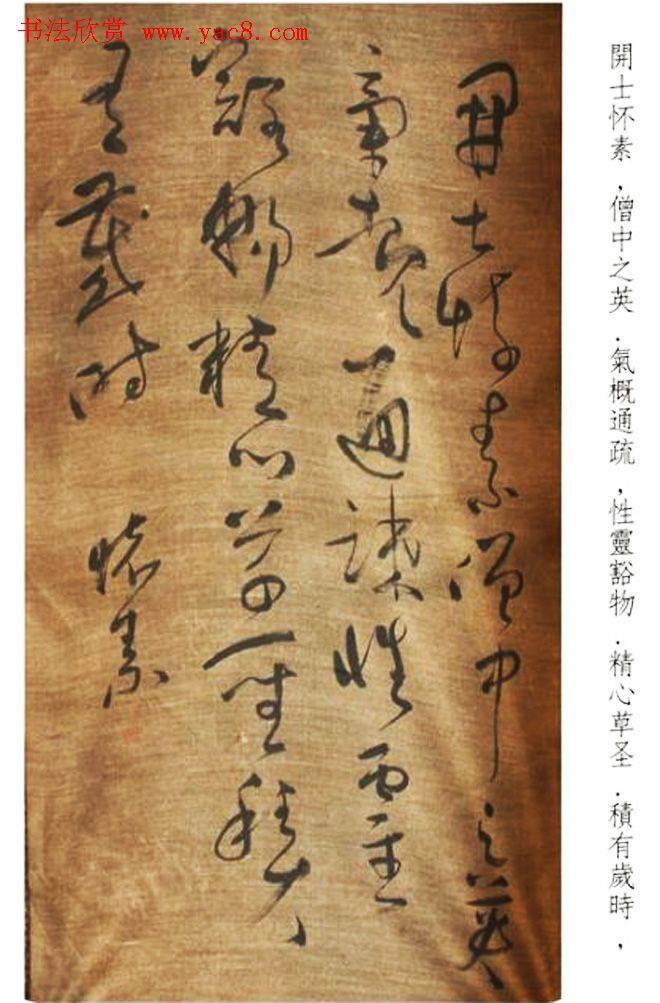 书法欣赏 www.yac8.com
開士怀素，僧中之英．氣概通疏，性靈豁物．精心草圣．積有歲時，
開士懷素僧中之英
氣概通疎性靈
豁暢精心草聖積
有歲時 懷素